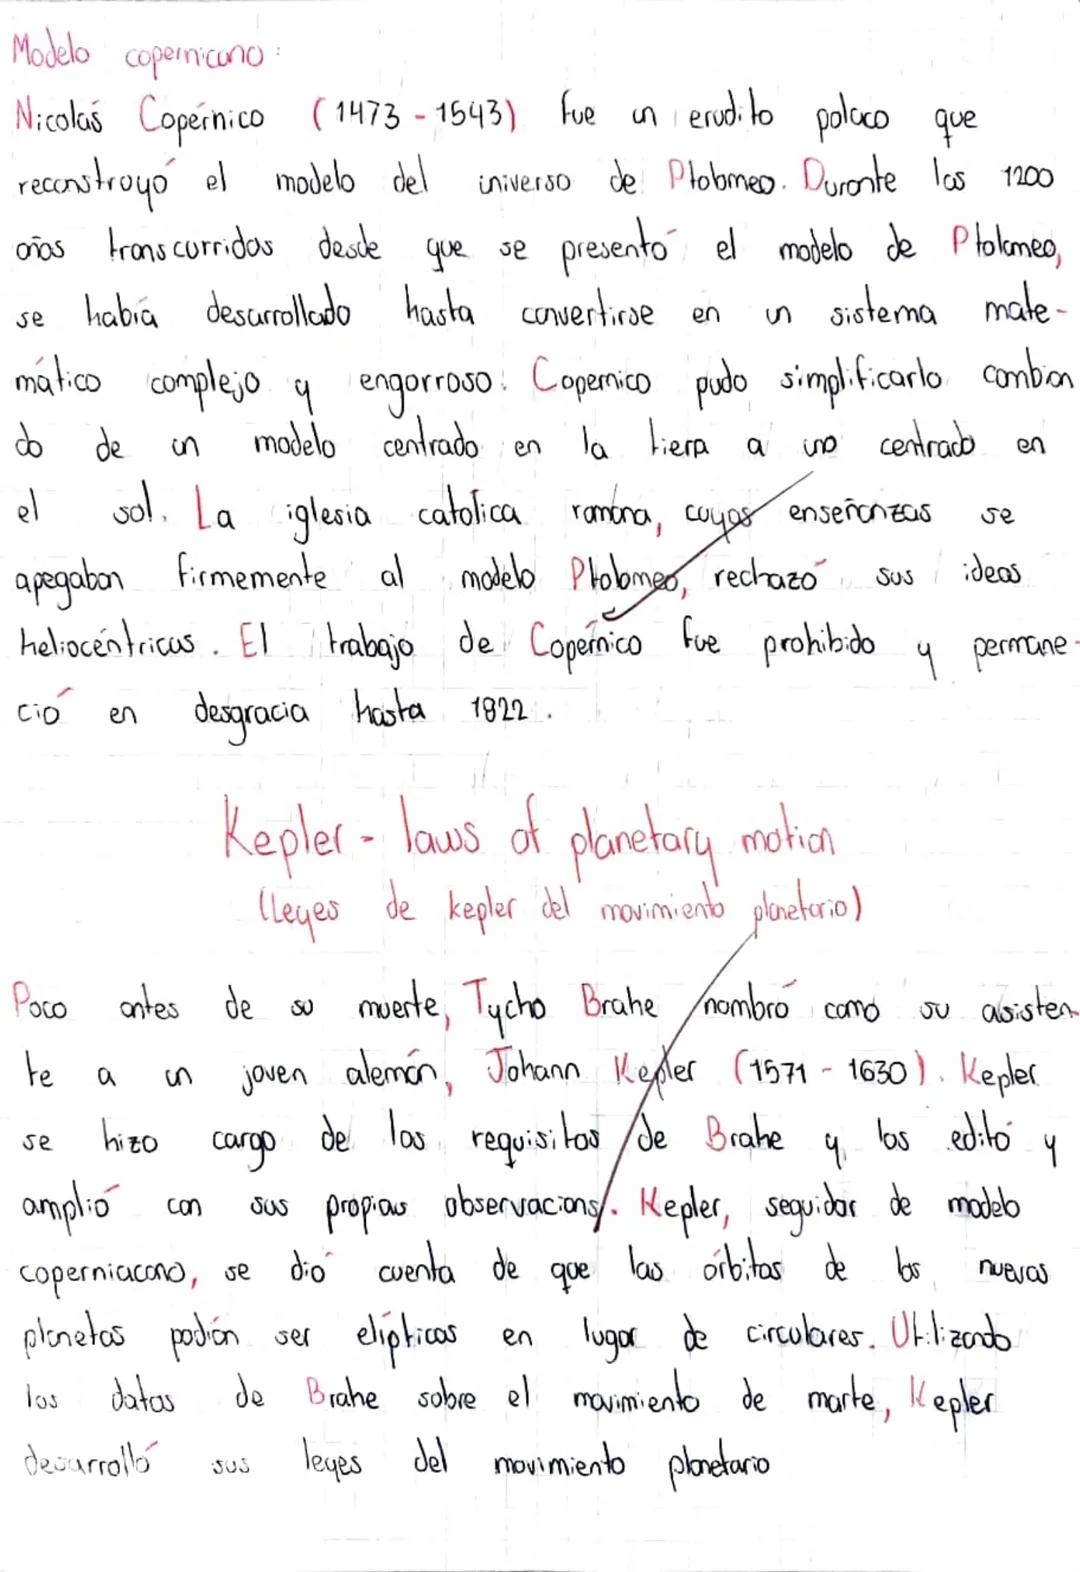 Modelo copernicano:
Nicolás Copérnico (1473 - 1543) fue un erudito polaco que
reconstroyó el modelo del iniverso de Ptolomeo. Durante los 1200
años transcurridos desde que se presentó el modelo de Ptolomeo,
se había desarrollado hasta convertirse en un sistema mate-
mático complejo y engorroso. Copernico pudo simplificarlo cambian
do de un modelo centrado en la tiera a uno centrado en
el sol. La iglesia católica romana, cuyas enseñanzas se
apegaban firmemente al modelo Ptolomeo, rechazó sus ideas
heliocéntricas. El trabajo de Copérnico fue prohibido y permane-
ció en desgracia hasta 1822.
Kepler - laws of planetary motion
(Leyes de kepler del movimiento planetario)
Poco antes de su muerte, Tycho Brahe nombró como su asisten-
te a un joven alemán, Johann Kepler (1571 - 1630). Kepler
se hizo cargo de los requisitos de Brahe y los editó y
amplió con sus propias observacions. Kepler, seguidor de modelo
coperniacano, se dió cuenta de que las órbitas de los nuevas
planetas podían ser elípticas en lugar de circulares. Utilizando
los datos de Brahe sobre el movimiento de marte, Kepler
desarrolló sus leyes del movimiento planetario